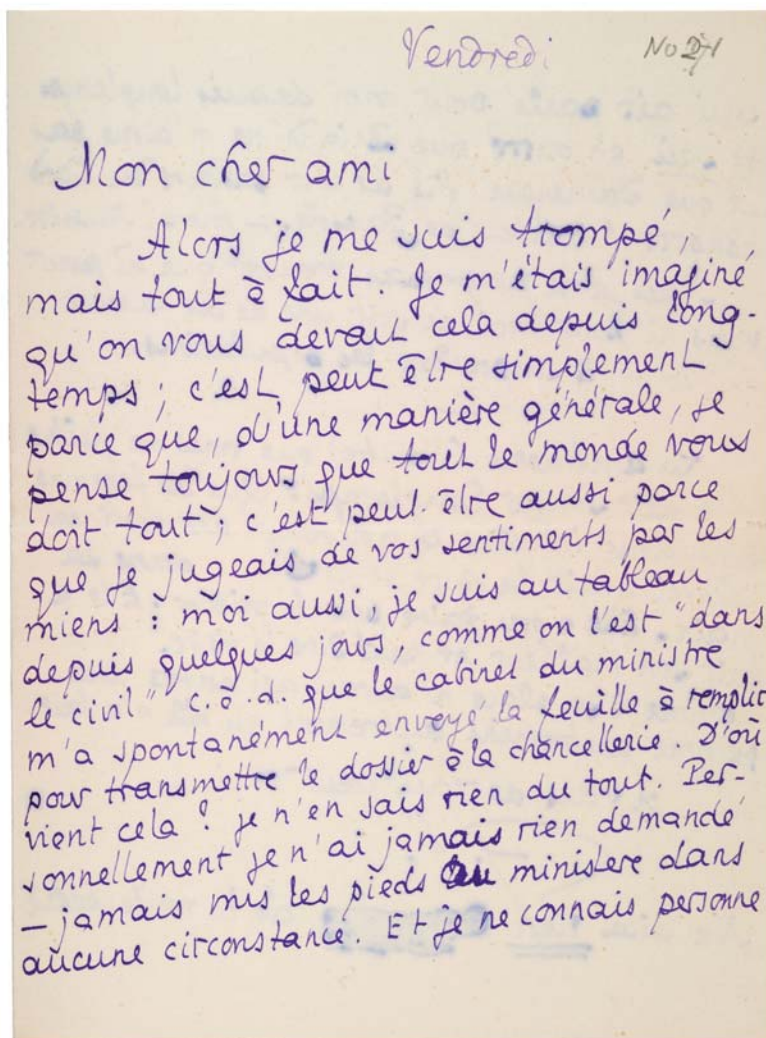 Vendredi
Mon cher ami
Alors je me suis trompé,
mais tout à fait. Je m'étais imaginé
qu'on vous devait cela depuis long-
temps ; c'est peut être simplement
parce que, d'une manière générale, je
pense toujours que tout le monde vous
doit tout ; c'est peut-être aussi parce
que je jugeais de vos sentiments par les
miens : moi aussi, je suis au tableau
depuis quelques jours, comme on l'est "dans
le civil" c.à.d. que le cabinet du ministre
m'a spontanément envoyé la feuille à remplir
pour transmettre le dossier à la chancellerie. D'où
vient cela ? je n'en sais rien du tout. Per-
sonnellement je n'ai jamais rien demandé
– jamais mis les pieds au ministere dans
aucune circonstance. Et je ne connais personne